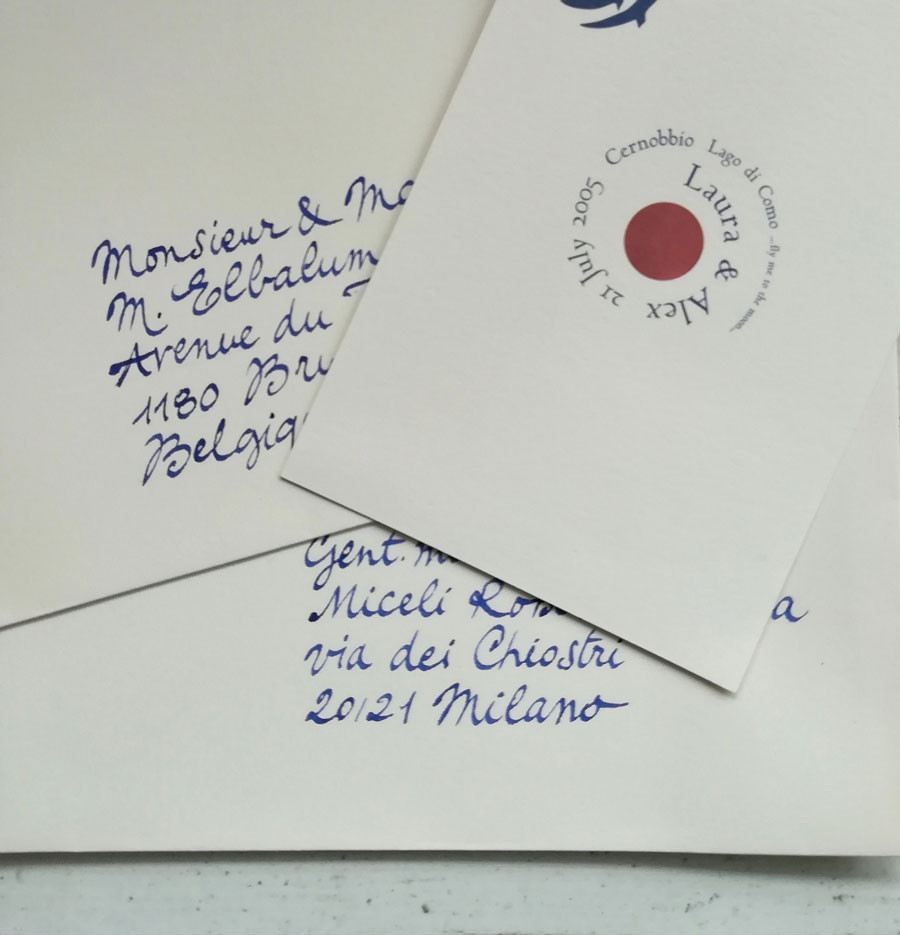 Monsieur & Ma
M. Elbalum
Avenue du
1180 Bru
Belgiq
Cernobbio Lago di Como -fly me to the moon...
Laura & Alex
21 July 2005
Gent. m
Miceli Rob a
via dei Chiostri
20121 Milano